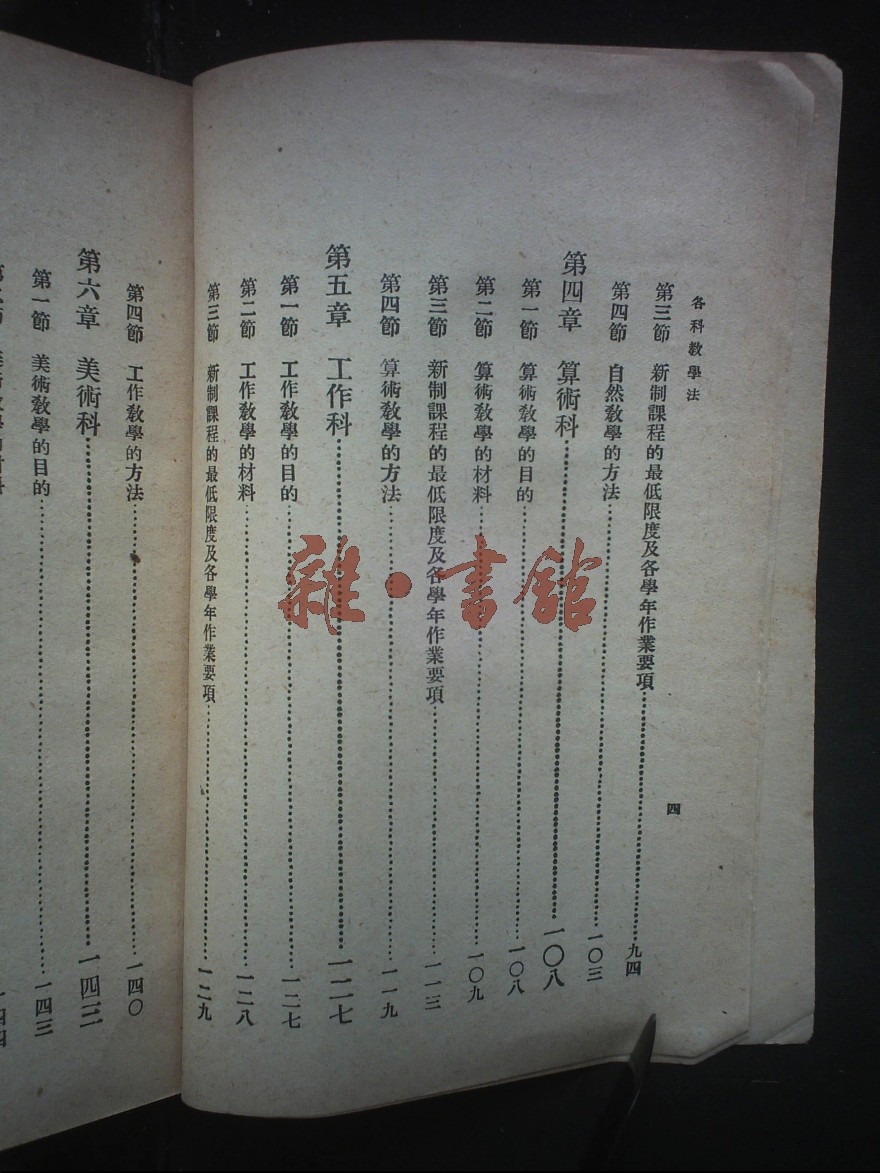 各科教學法
四
第三節 新制課程的最低限度及各學年作業要項……九四
第四節 自然教學的方法……一〇三
第四章 算術科……一〇八
第一節 算術教學的目的……一〇八
第二節 算術教學的材料……一〇九
第三節 新制課程的最低限度及各學年作業要項……一一三
第四節 算術教學的方法……一一九
第五章 工作科……一二七
第一節 工作教學的目的……一二七
第二節 工作教學的材料……一二八
第三節 新制課程的最低限度及各學年作業要項……一二九
第四節 工作教學的方法……一四〇
第六章 美術科……一四三
第一節 美術教學的目的……一四三
雜·書館